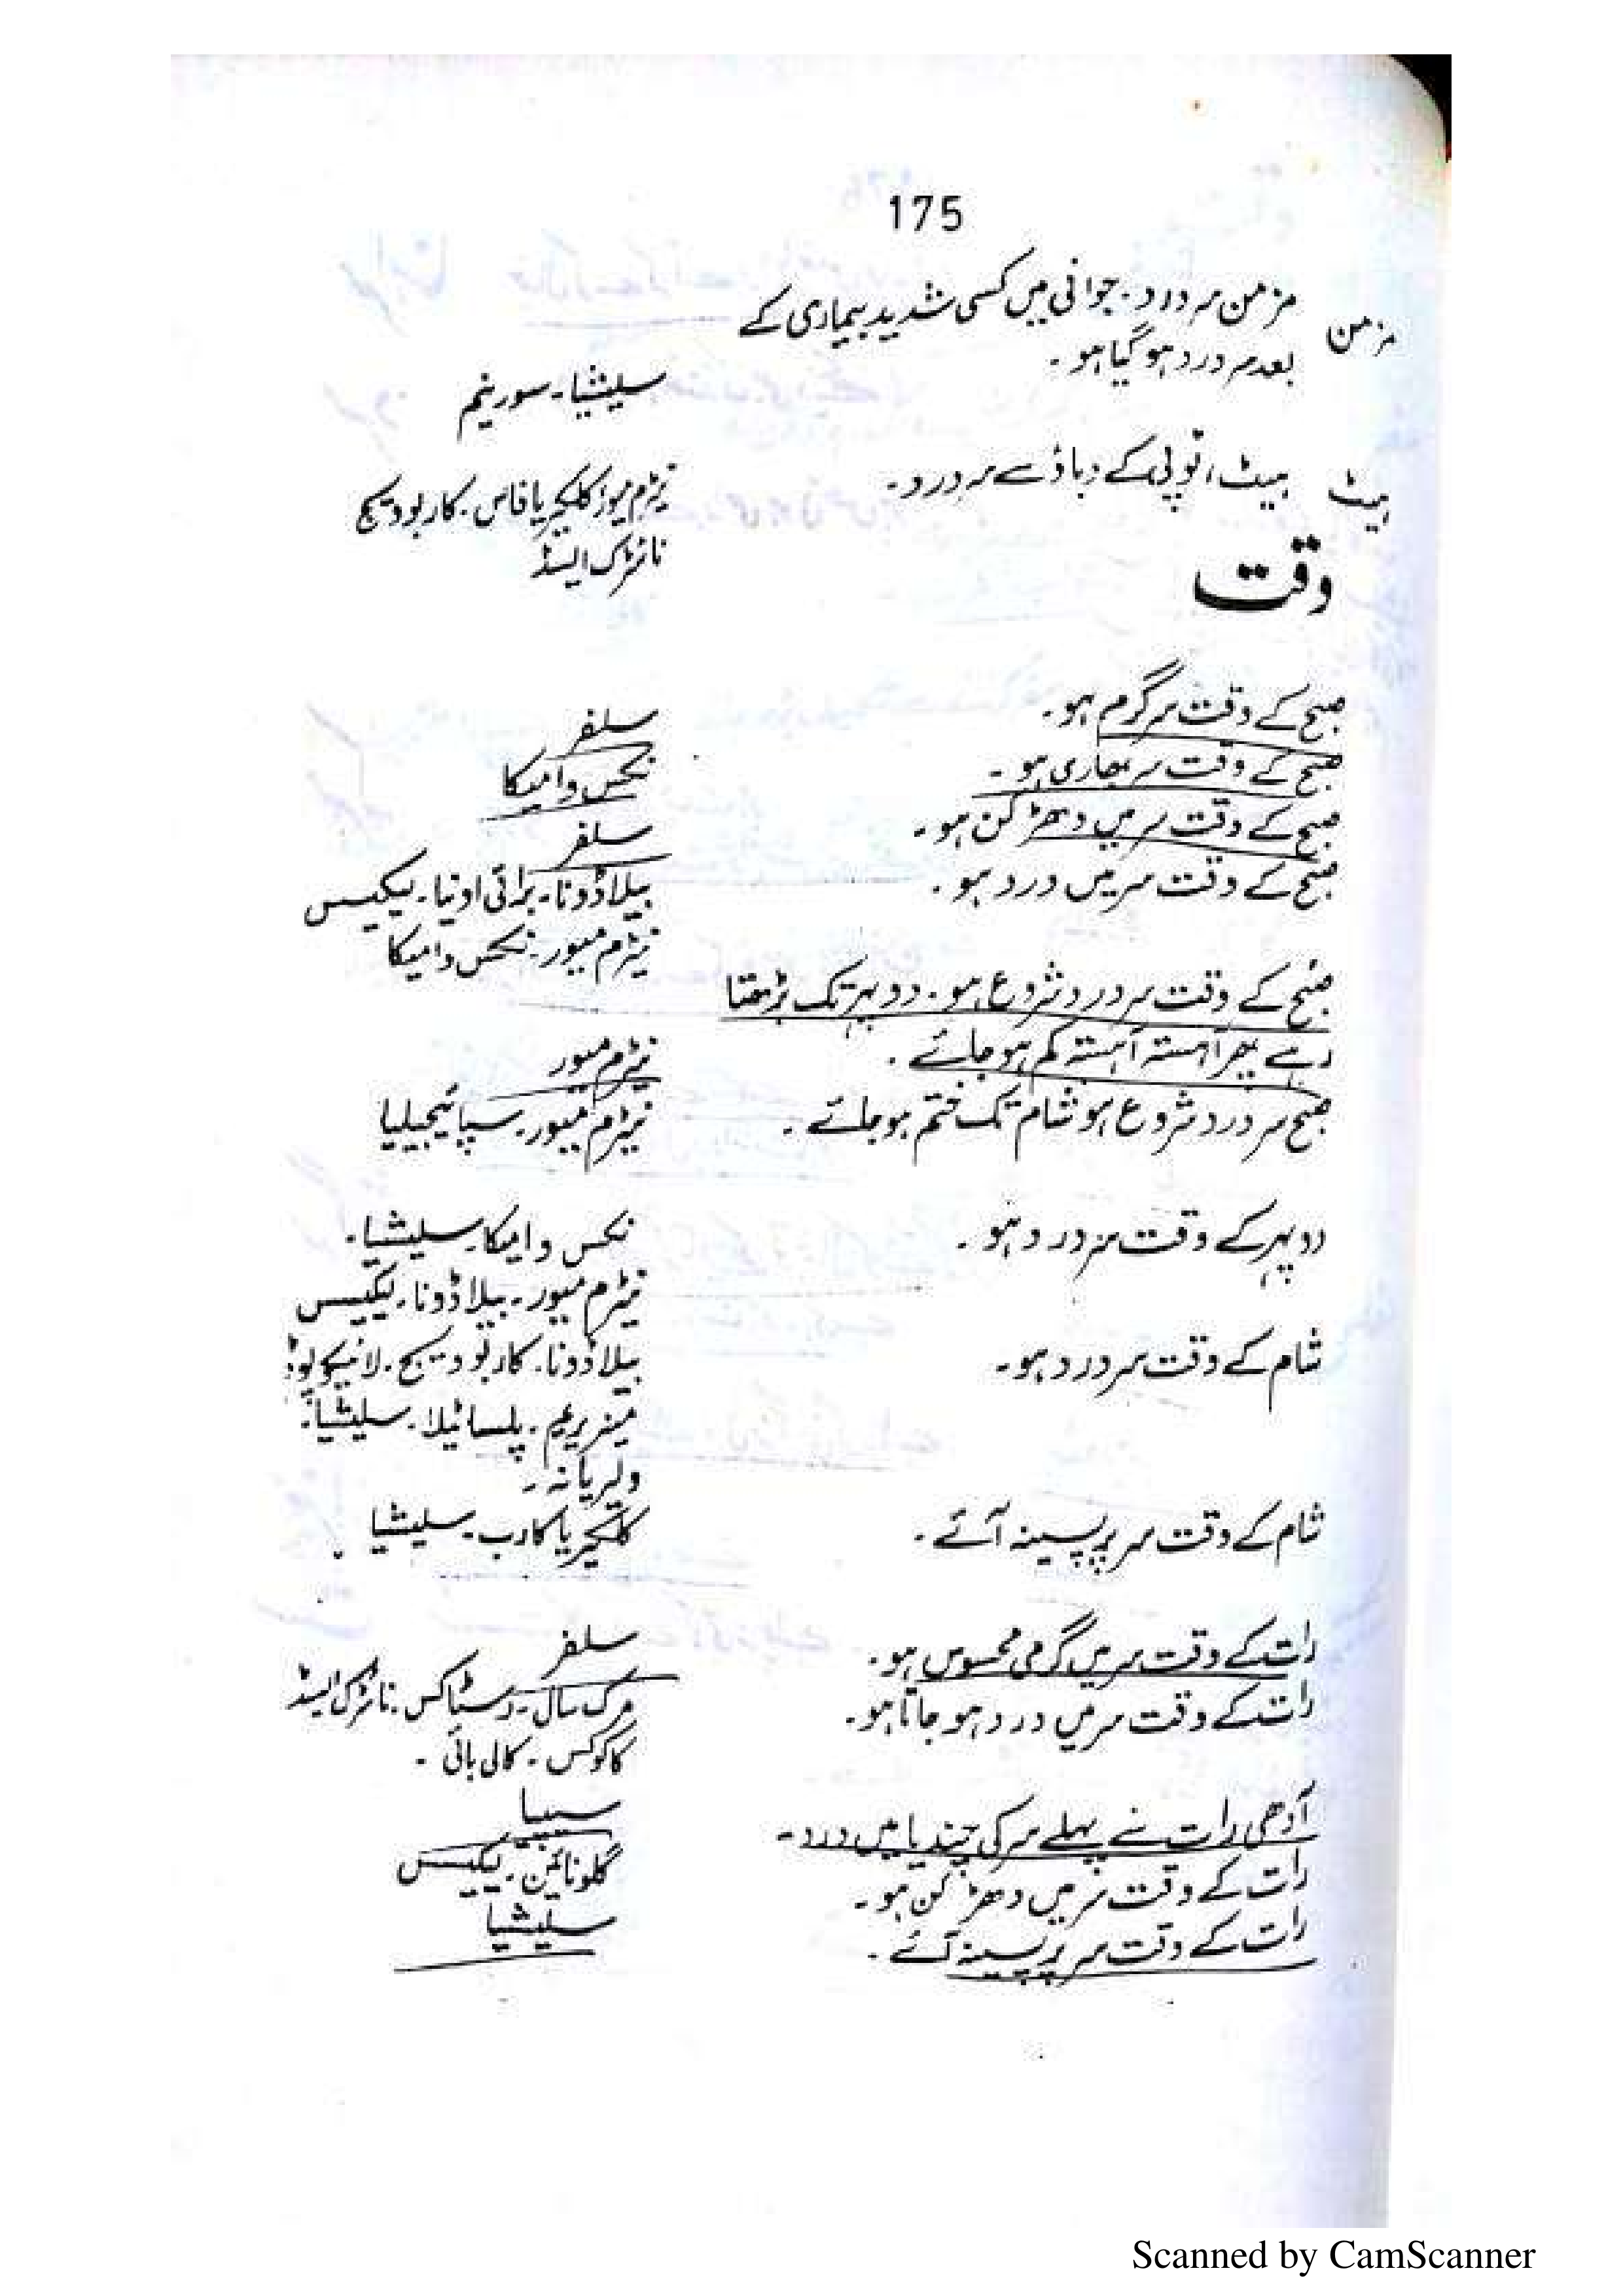 175
مزمن مزمن سر درد۔ جوانی میں کسی شدید بیماری کے
بعد سر درد ہو گیا ہو۔
سلیشیا۔ سورینم
ہیٹ ہیٹ، ٹوپی کے دباؤ سے سر درد۔
نیٹرم میور۔ کلکیریا فاس۔ کاربوویج
نائٹرک ایسڈ
وقت
صبح کے وقت سر گرم ہو۔
سلفر
صبح کے وقت سر بھاری ہو۔
نکس وامیکا
صبح کے وقت سر میں دھڑکن ہو۔
سلفر
صبح کے وقت سر میں درد ہو۔
بیلاڈونا۔ برائی اونیا۔ لیکیسس
نیٹرم میور۔ نکس وامیکا
صبح کے وقت سر درد شروع ہو۔ دوپہر تک بڑھتا
رہے پھر آہستہ آہستہ کم ہو جائے۔
نیٹرم میور
صبح سر درد شروع ہو شام تک ختم ہو جائے۔
نیٹرم میور۔ سپائیجیلیا
دوپہر کے وقت سر درد ہو۔
نکس وامیکا۔ سلیشیا۔
نیٹرم میور۔ بیلاڈونا۔ لیکیسس
شام کے وقت سر درد ہو۔
بیلاڈونا۔ کاربوویج۔ لائیکوپوڈ
میزیریم۔ پلساٹیلا۔ سلیشیا۔
ولیریانہ۔
شام کے وقت سر پر پسینہ آئے۔
کلکیریا کارب۔ سلیشیا
رات کے وقت سر میں گرمی محسوس ہو۔
سلفر
رات کے وقت سر میں درد ہو جاتا ہو۔
مرک سال۔ رسٹاکس۔ نائٹرک ایسڈ
کاکوکس۔ کالی بائی۔
آدھی رات سے پہلے سر کی چندیا میں درد۔
سیپیا
رات کے وقت سر میں دھڑکن ہو۔
گلونائین۔ لیکیسس
رات کے وقت سر پر پسینہ آئے۔
سلیشیا
Scanned by CamScanner